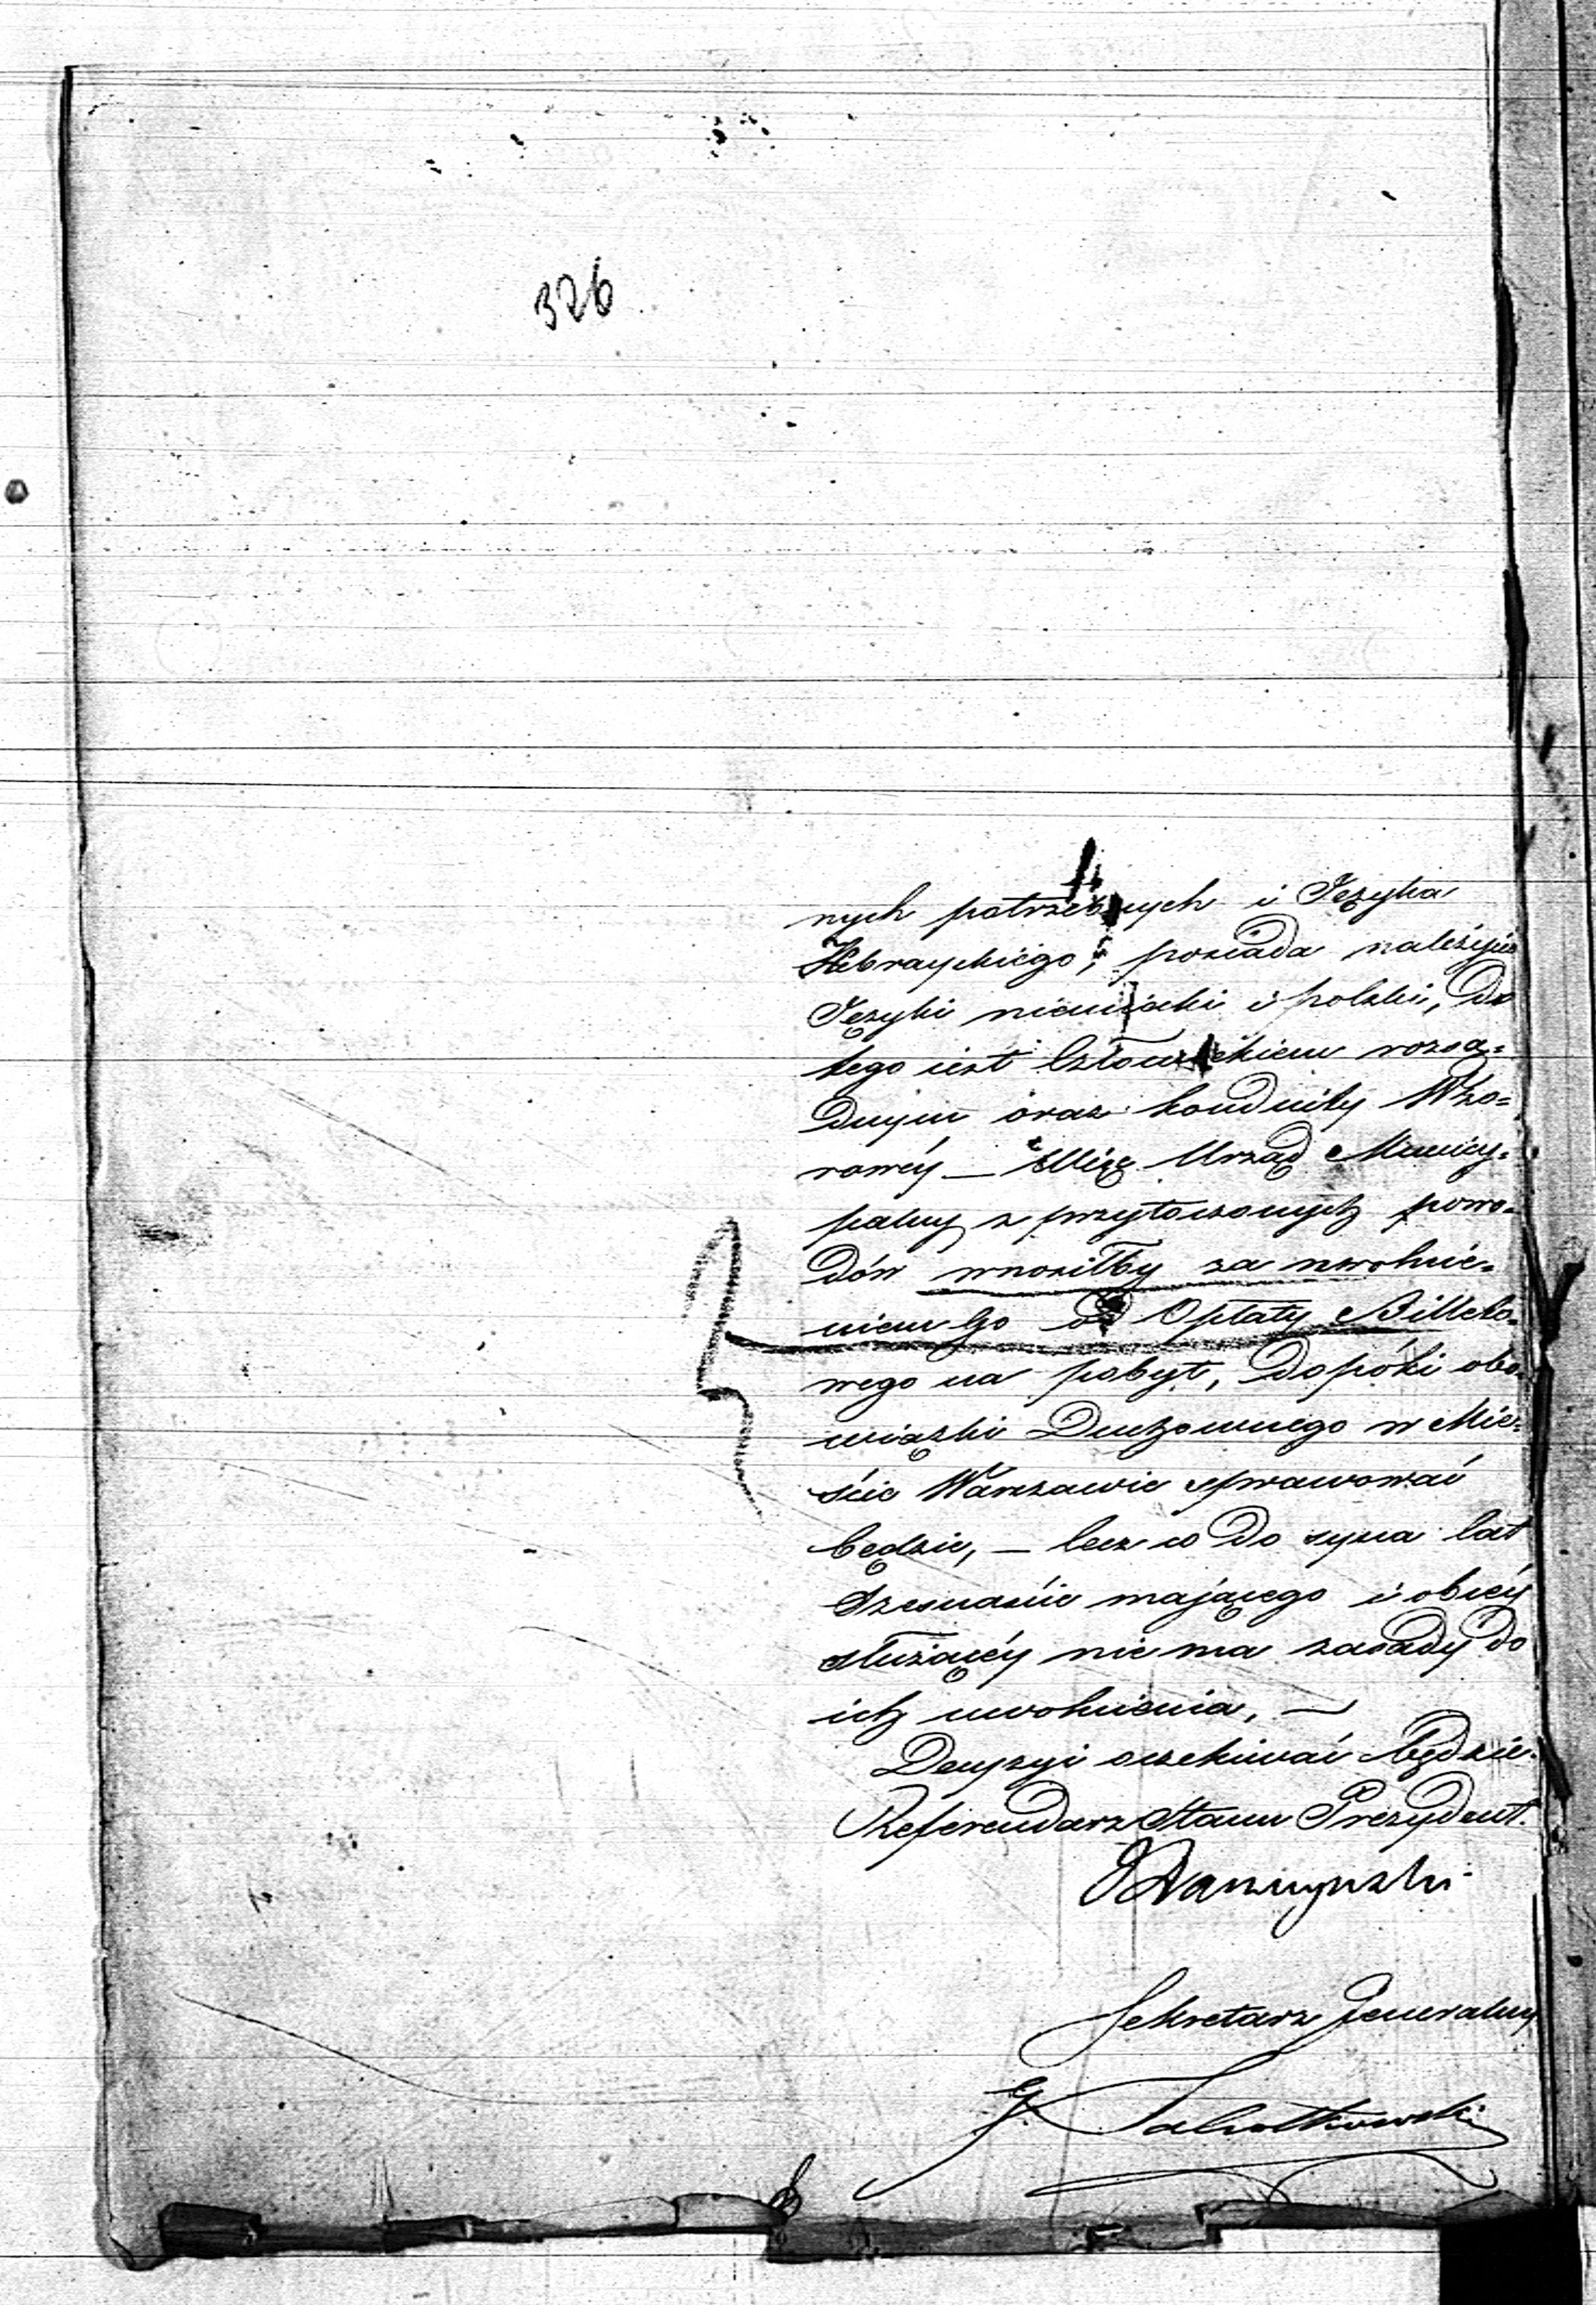 326
nych potrzebnych i Języka
Hebrayskiego, posiada należycie
Języki niemiecki i polski, do
tego iest Człowiekiem rozsą=
dnym oraz konduity Wzo=
rowéy — Więc Urząd Municy=
palny z przytoczonych powo=
dów wnosiłby za uwolnie=
niem Go od Opłaty Billeto=
wego na pobyt, dopóki obo=
wiązki Duchownego w Mie=
ście Warszawie sprawować
będzie, — lecz co do syna lat
szesnaście mającego i obcéy
służącéy nie ma zasady do
ich uwolnienia. —
Decyzyi oczekiwać będzie.
Referendarz Stanu Prezydent.
Sekretarz Jeneralny